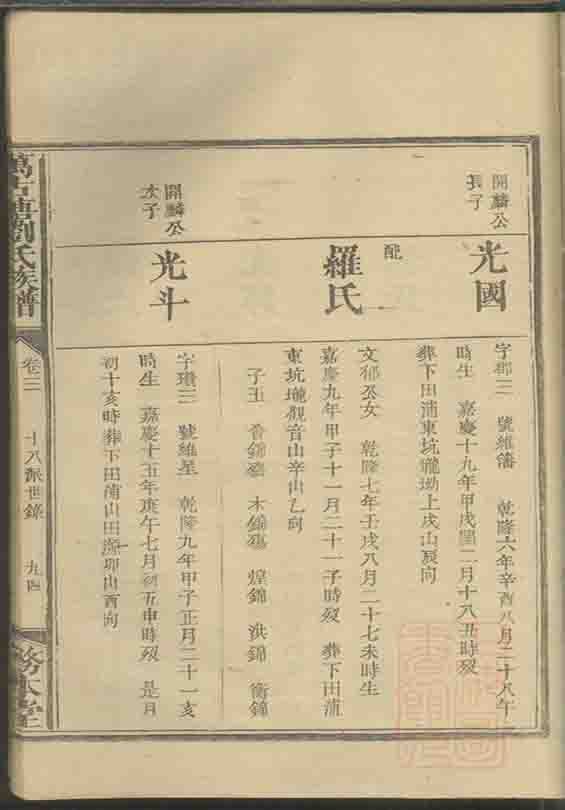 開麟公
長子
光國
字郡三 號維藩 乾隆六年辛酉八月二十八午
時生 嘉慶十九年甲戌閏二月十八丑時歿
葬下田浦東坑瓏坳上戌山辰向
配
羅氏
文郁丞女 乾隆七年壬戌八月二十七未時生
嘉慶九年甲子十一月二十一子時歿 葬下田浦
東坑瓏觀音山辛山乙向
子五 錦殤 木錦殤 煌錦 洪錦 衡錦
開麟公
次子
光斗
字瓚三 號維星 乾隆九年甲子正月二十一亥
時生 嘉慶十五年庚午七月初五申時歿 是月
初十亥時葬下田浦山田灣卯山酉向
萬古塘劉氏族譜
卷三
十八派世錄
九四
務本堂